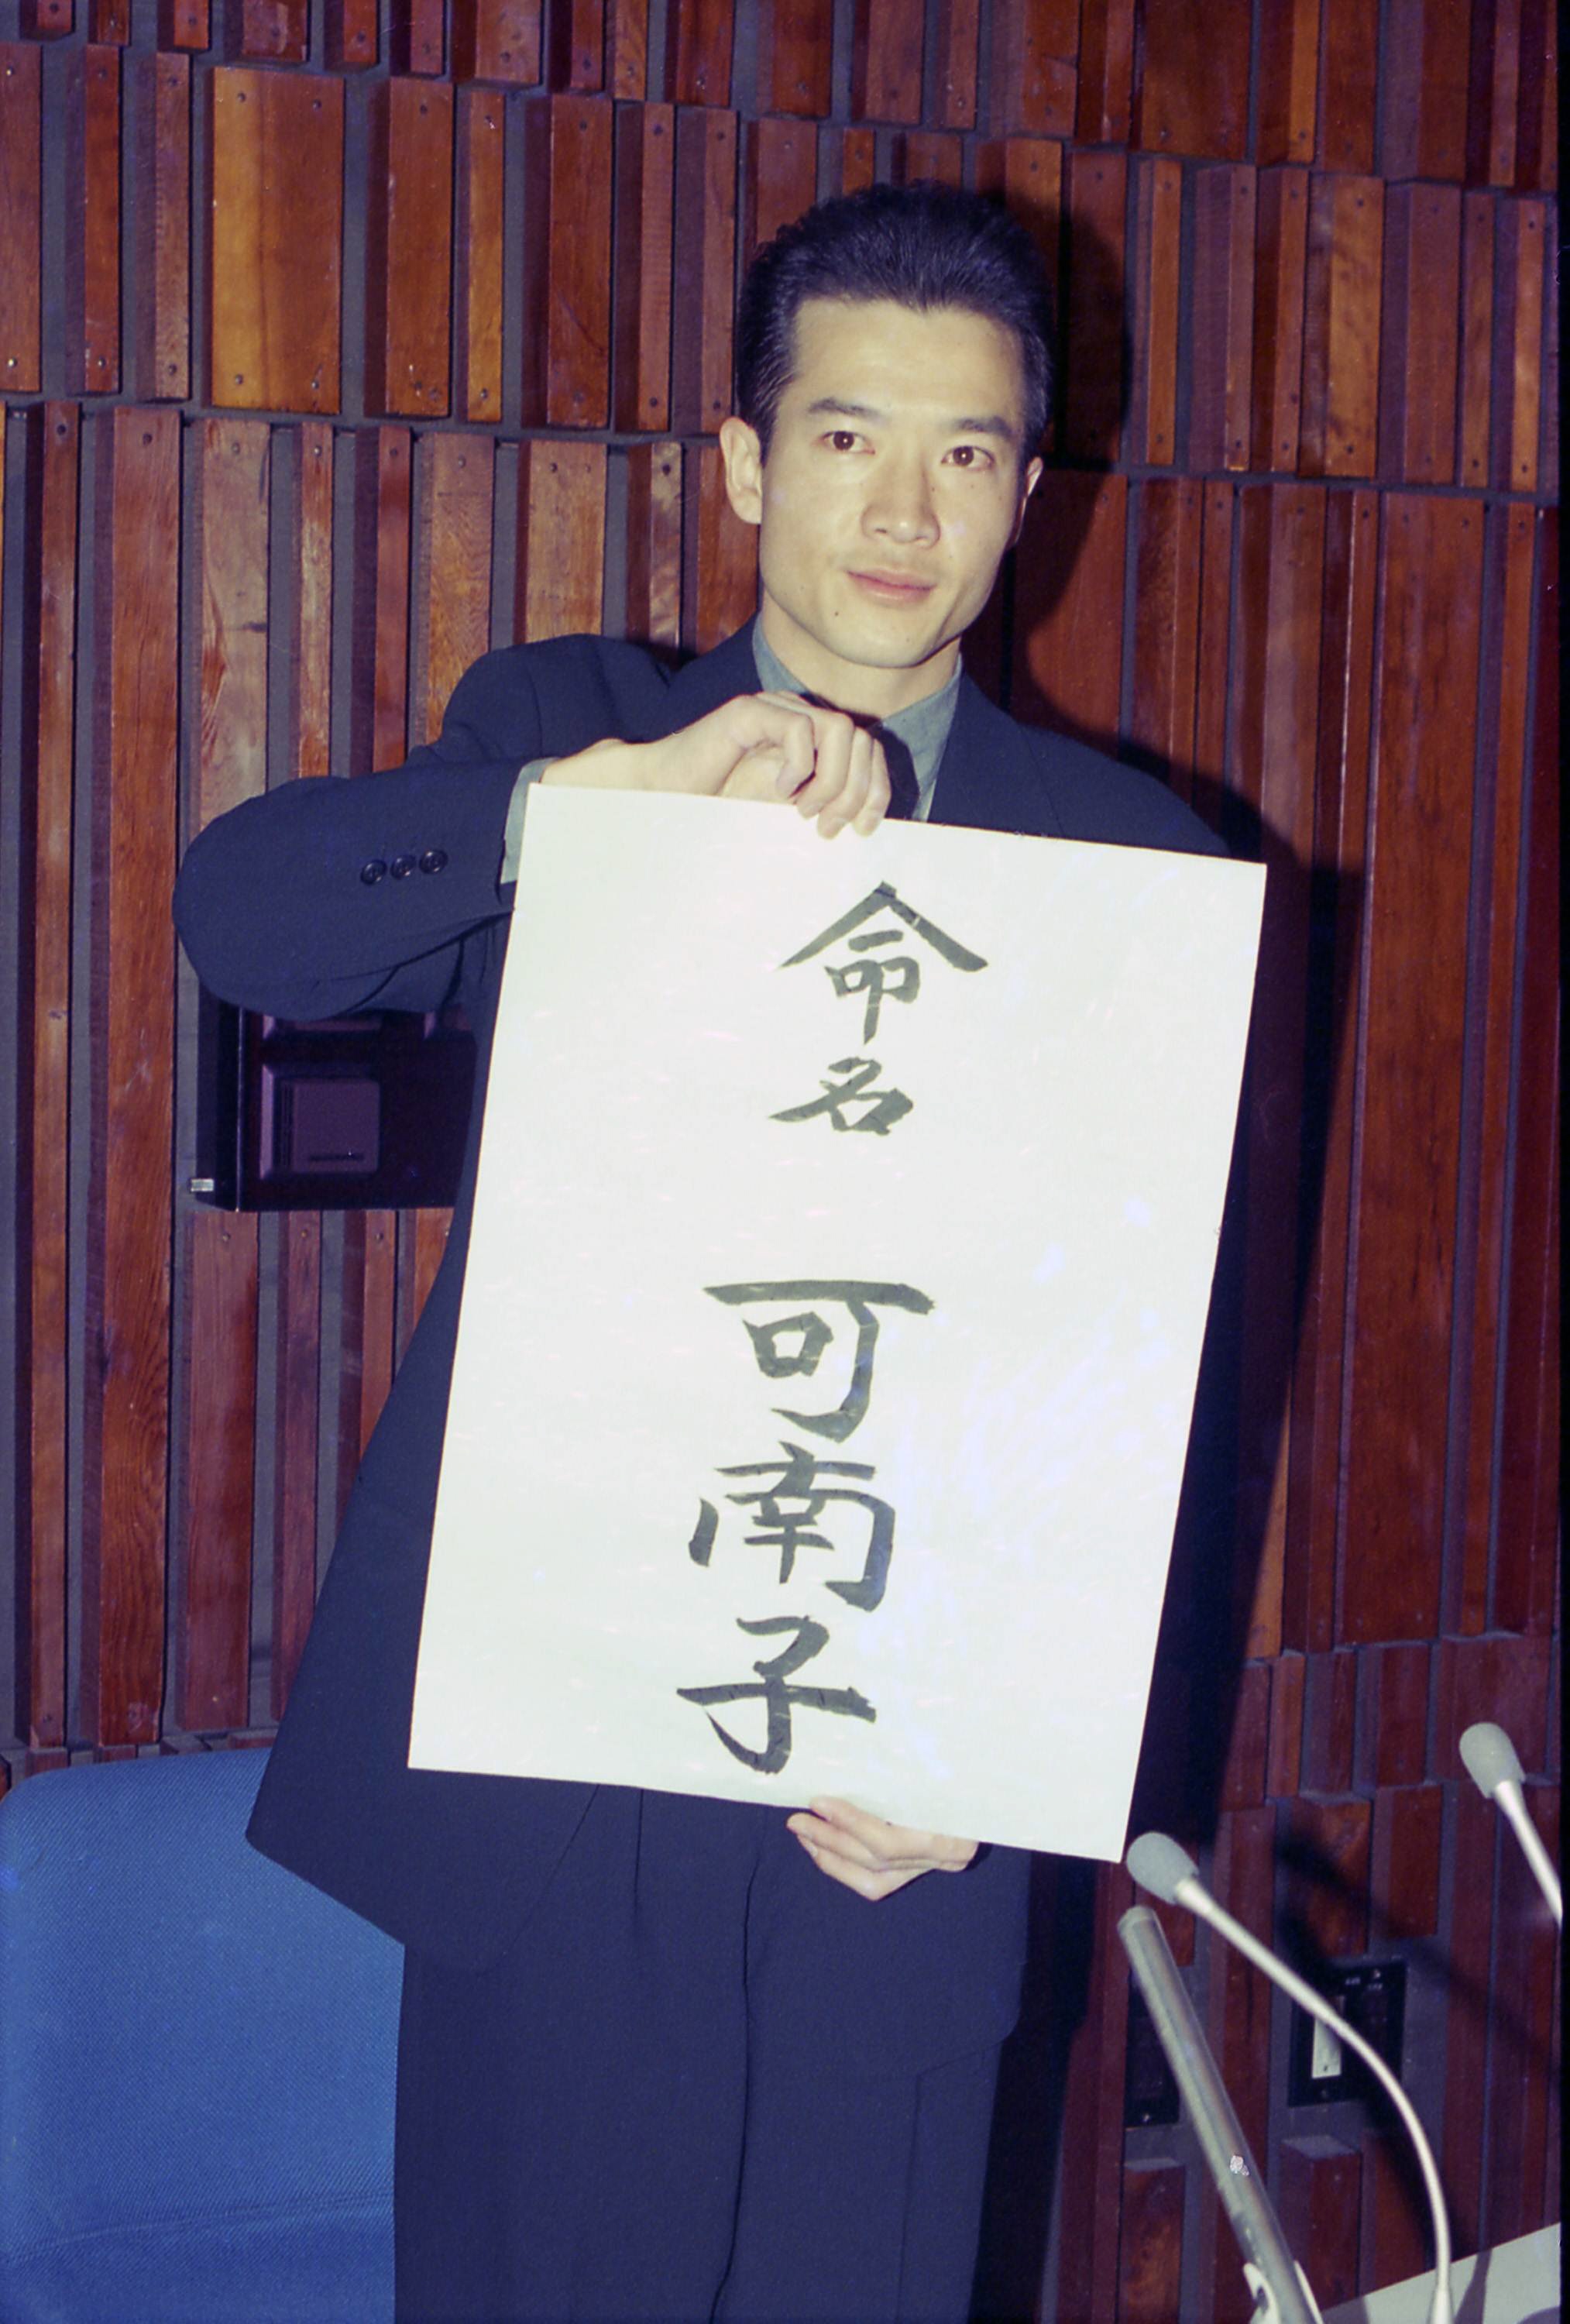 命名 可南子